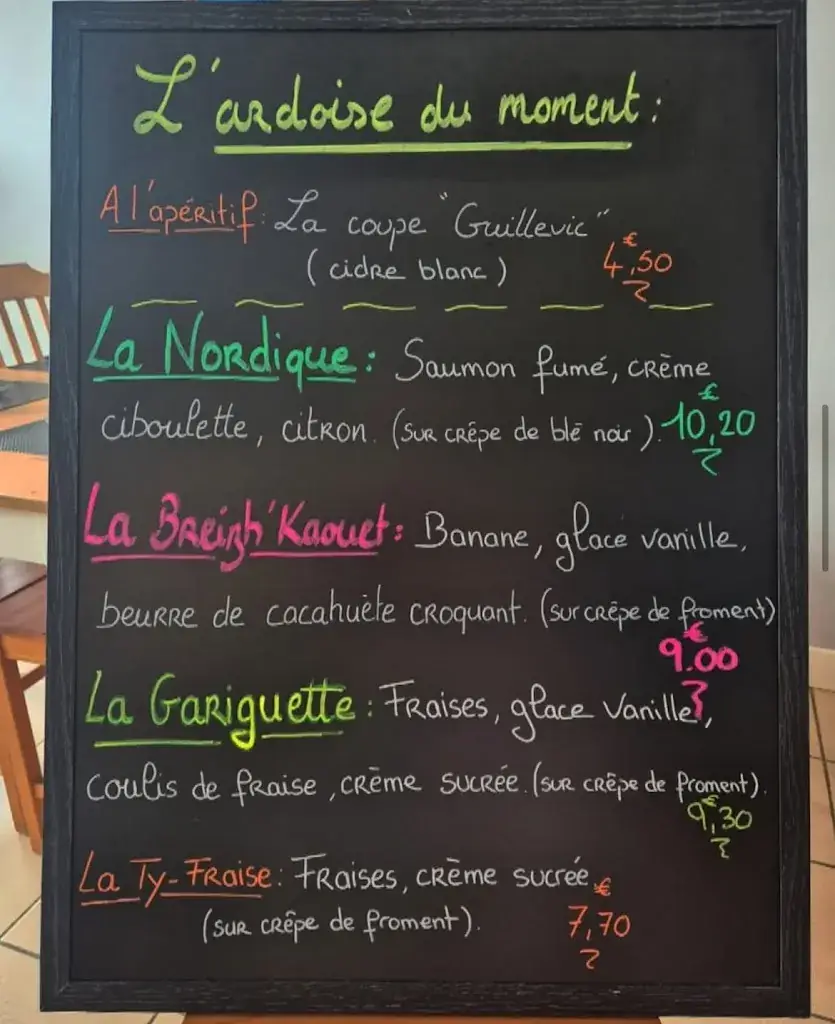 L'ardoise du moment :
A l'apéritif : La coupe "Guillevic"
(cidre blanc) 4,50 €
La Nordique : Saumon fumé, crème
ciboulette, citron. (sur crêpe de blé noir). 10,20 €
La Breizh'Kaouet : Banane, glace vanille,
beurre de cacahuète croquant. (sur crêpe de froment)
9.00 €
La Gariguette : Fraises, glace vanille,
coulis de fraise, crème sucrée. (sur crêpe de froment).
9,30 €
La Ty-Fraise : Fraises, crème sucrée
(sur crêpe de froment). 7,70 €